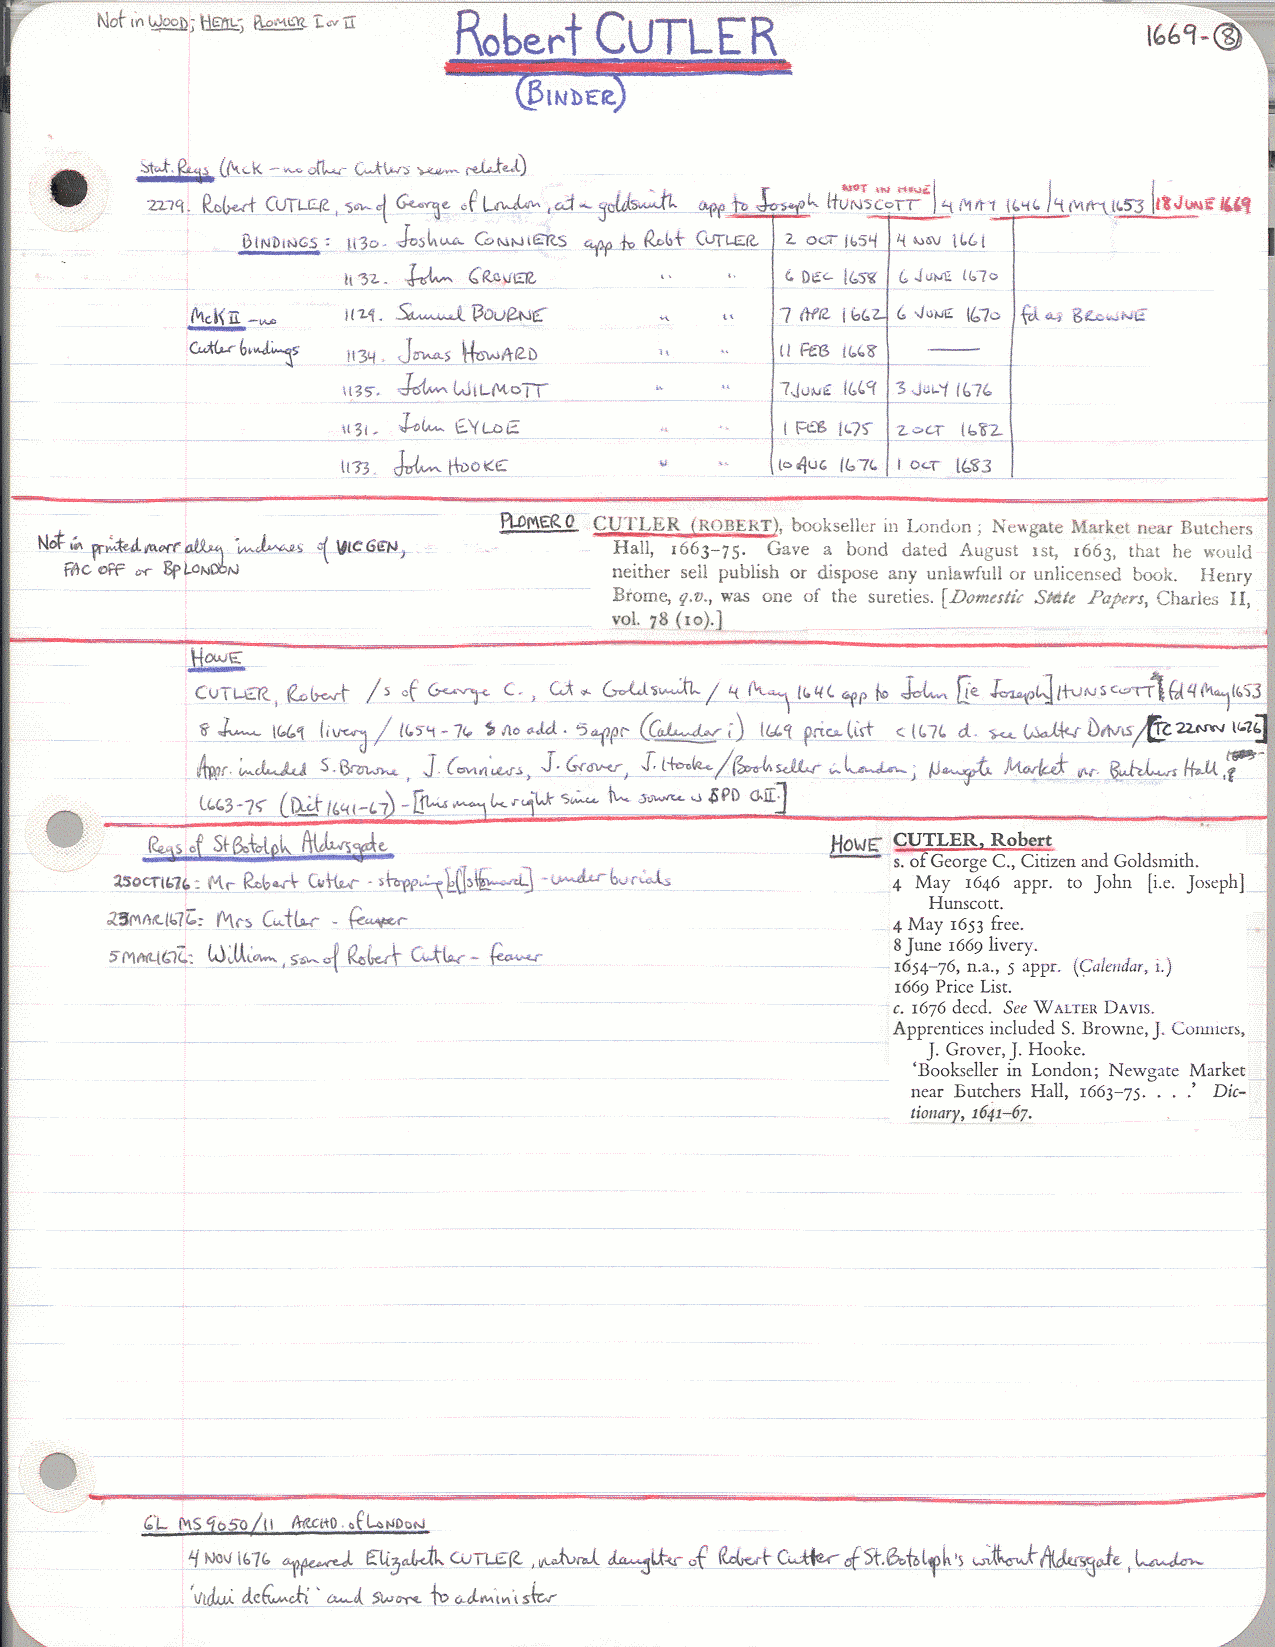 Not in WOOD; HEAL; PLOMER I or II
Robert CUTLER
1669-⑧
(BINDER)
Stat. Regs (McK - no other Cutlers seem related)
NOT IN HOWE
2279. Robert CUTLER, son of George of London, cit & goldsmith app to Joseph HUNSCOTT | 4 MAY 1646 | 4 MAY 1653 | 18 JUNE 1669
BINDINGS: 1130. Joshua CONNIERS app to Robt CUTLER | 2 OCT 1654 | 4 NOV 1661
1132. John GROVER " " 6 DEC 1658 | 6 JUNE 1670
McK II - no 1129. Samuel BOURNE " " 7 APR 1662 | 6 JUNE 1670 | fd as BROWNE
Cutler bindings 1134. Jonas HOWARD " " 11 FEB 1668 | —
1135. John WILMOTT " " 7 JUNE 1669 | 3 JULY 1676
1131. John EYLOE " " 1 FEB 1675 | 2 OCT 1682
1133. John HOOKE " " 10 AUG 1676 | 1 OCT 1683
Not in printed marr alleg indexes of VIC GEN,
FAC OFF or Bp LONDON
PLOMER 0 CUTLER (ROBERT), bookseller in London; Newgate Market near Butchers
Hall, 1663-75. Gave a bond dated August 1st, 1663, that he would
neither sell publish or dispose any unlawfull or unlicensed book. Henry
Brome, q.v., was one of the sureties. [Domestic State Papers, Charles II,
vol. 78 (10).]
HOWE
CUTLER, Robert / s of George C., Cit & Goldsmith / 4 May 1646 app to John [ie Joseph] HUNSCOTT / fd 4 May 1653
8 June 1669 livery / 1654-76 no add. 5 appr (Calendar i) 1669 price list c 1676 d. see Walter DAVIS / [TC 22 NOV 1676]
Appr. included S. Browne, J. Conniers, J. Grover, J. Hooke / Bookseller in London; Newgate Market nr. Butchers Hall,
1663-75 (Dict 1641-67) - [This may be right since the source is SPD Ch II.]
Regs of St Botolph Aldersgate
25 OCT 1676: Mr Robert Cutler - stopping of [stomach] - under burials
23 MAR 1676: Mrs Cutler - feaver
5 MAR 1676: William, son of Robert Cutler - feaver
HOWE CUTLER, Robert
s. of George C., Citizen and Goldsmith.
4 May 1646 appr. to John [i.e. Joseph]
Hunscott.
4 May 1653 free.
8 June 1669 livery.
1654–76, n.a., 5 appr. (Calendar, i.)
1669 Price List.
c. 1676 decd. See WALTER DAVIS.
Apprentices included S. Browne, J. Conniers,
J. Grover, J. Hooke.
'Bookseller in London; Newgate Market
near Butchers Hall, 1663–75. . . .' Dic-
tionary, 1641–67.
GL MS 9050/11 ARCHD. of LONDON
4 NOV 1676 appeared Elizabeth CUTLER, natural daughter of Robert Cutler of St. Botolph's without Aldersgate, London
'vidui defuncti' and swore to administer